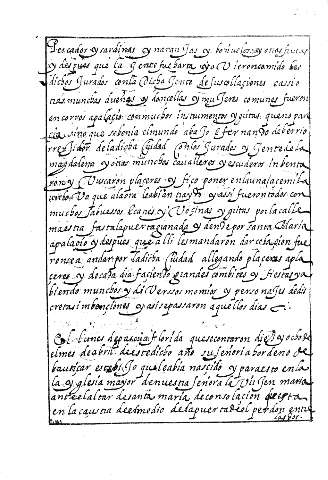 Pescados y sardinas y naranjas y boñuelos y otras frutas
y despues que la gente fue harta y ovieron comido los
dichos Jurados con la dicha gente de sus collaçiones e assi
tras munchas dueñas y donzellas y mugeres comunes fueron
en corros a palaçio con munchos instrumentos y gritas que no pare
çia sino que se benia el mundo abajo e fernando de berrio
rregidor de la dicha çiudad con los Jurados y gente de la
magdalena y otros munchos cavalleros y escuderos
y buscaron plazeres y fizo poner en la una azemila
Vo que alo avian y assi fueron todos con
munchos sabuesos e canes y Vozinas y gritas por la calle
maestra fasta la puerta y dende por santa Maria
a palaçio y despues que alli les mandaron dar colaçion fue
ronse a andar por la dicha çiudad allegando plazeres a pla
zeres y de cada dia faziendo grandes conbites y fiestas y a
biendo munchos y diversos momos y personajes de dis
cretas inbençiones y asi se passaron aquellos dias
El lunes de pascua florida que se contaron diez y ocho de
el mes de abril de este dicho año su señoria hordeno de
bautizar este hijo que le habia nasçido y para esto en la
la yglesia mayor de nuestra señora la Virgen maria
ante el altar de santa maria de consolaçion de esta
en la claustra de en medio de la puerta de el perdon entre
las dos